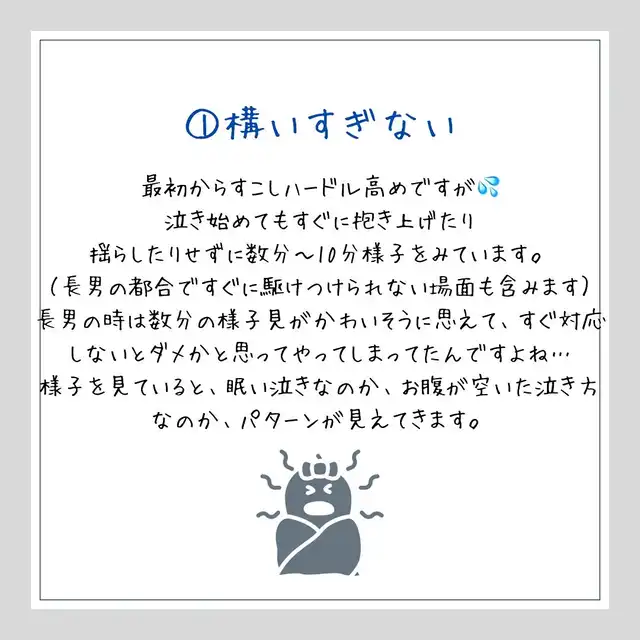 ①構いすぎない
最初からすこしハードル高めですが💦
泣き始めてもすぐに抱き上げたり
揺らしたりせずに数分〜10分様子をみています。
（長男の都合ですぐに駆けつけられない場面も含みます）
長男の時は数分の様子見がかわいそうに思えて、すぐ対応
しないとダメかと思ってやってしまってたんですよね…
様子を見ていると、眠い泣きなのか、お腹が空いた泣き方
なのか、パターンが見えてきます。